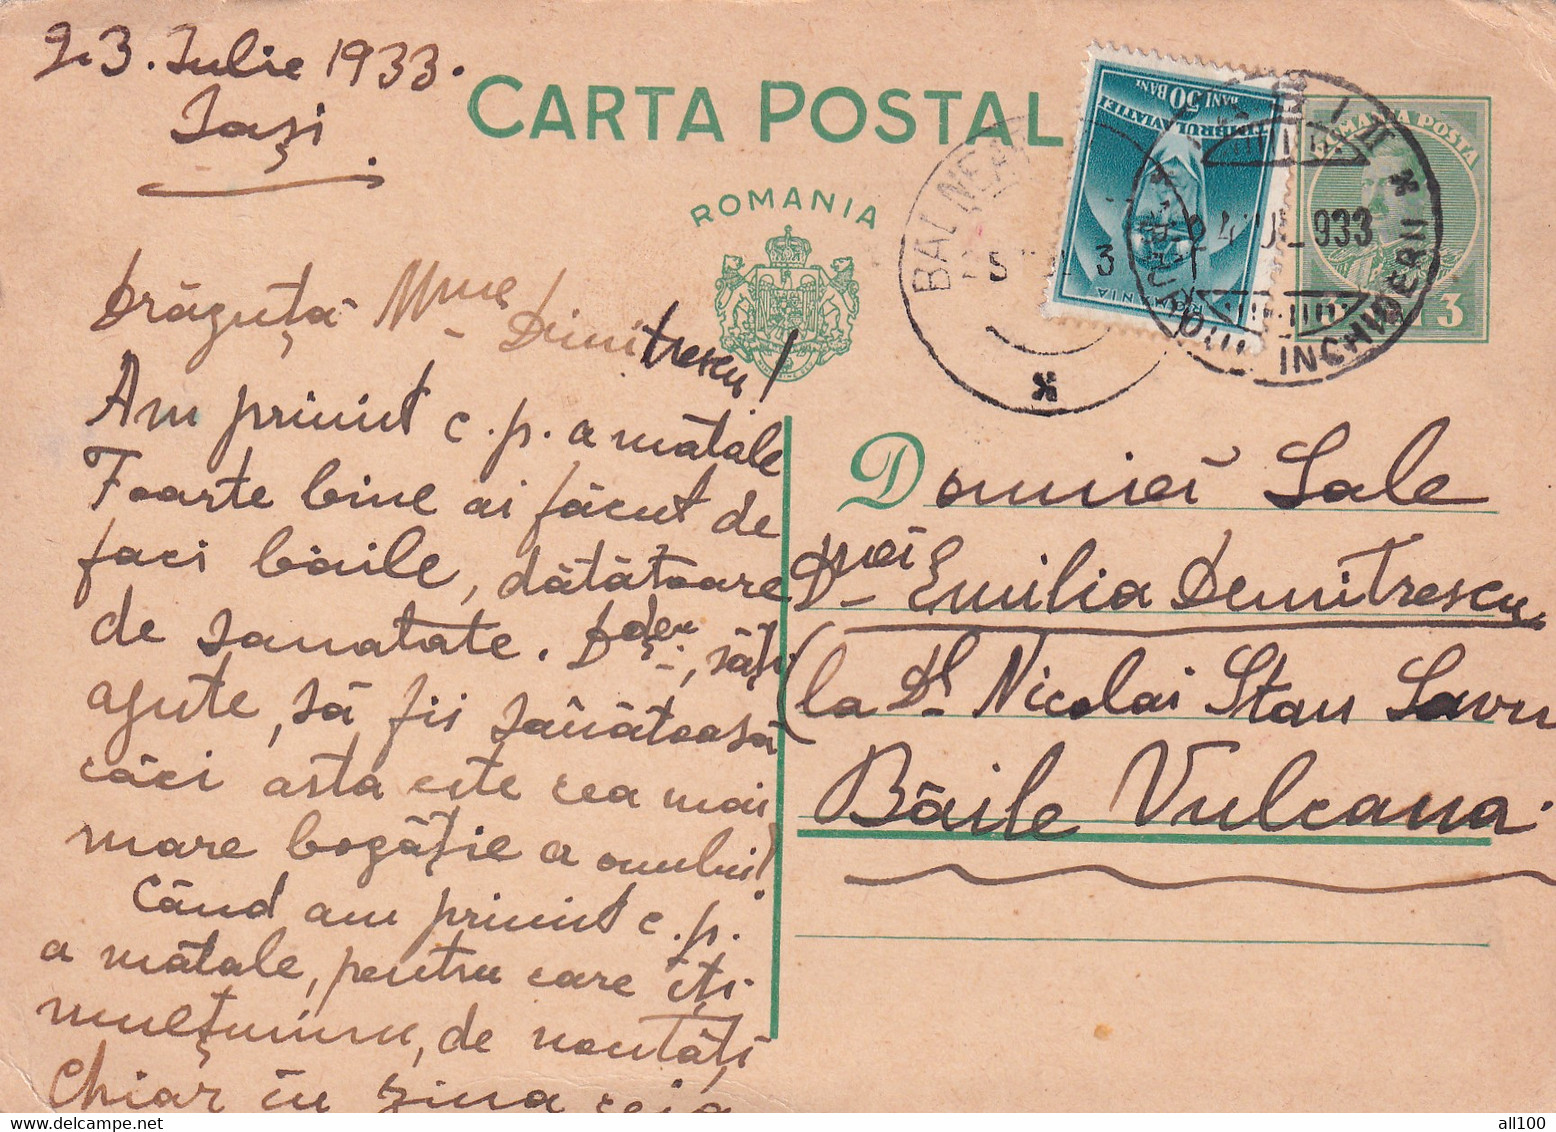 23. Iulie 1933.
Iași
CARTA POSTAL
ROMANIA
TIMBRUL AVIATIEI
BANI 50 BANI
ROMANIA
ROMANIA POSTA
3
BALNEAR
24 JUL 933
INCHIDERII
Drăguță Mme Dimitrescu!
Am primit c.p. a mătale
Foarte bine ai făcut de
faci băile, dătătoare
de sanatate. , să-ți
ajute, să fii sănătoasă
căci asta este cea mai
mare bogăție a omului!
Când am primit c.p.
a mătale, pentru care îți
mulțumim, de noutăți
Chiar în ziua ceia
Domniei Sale
Dnei Emilia Demitrescu
(la Dl Nicolai Stan Savu
Băile Vulcana.
all100